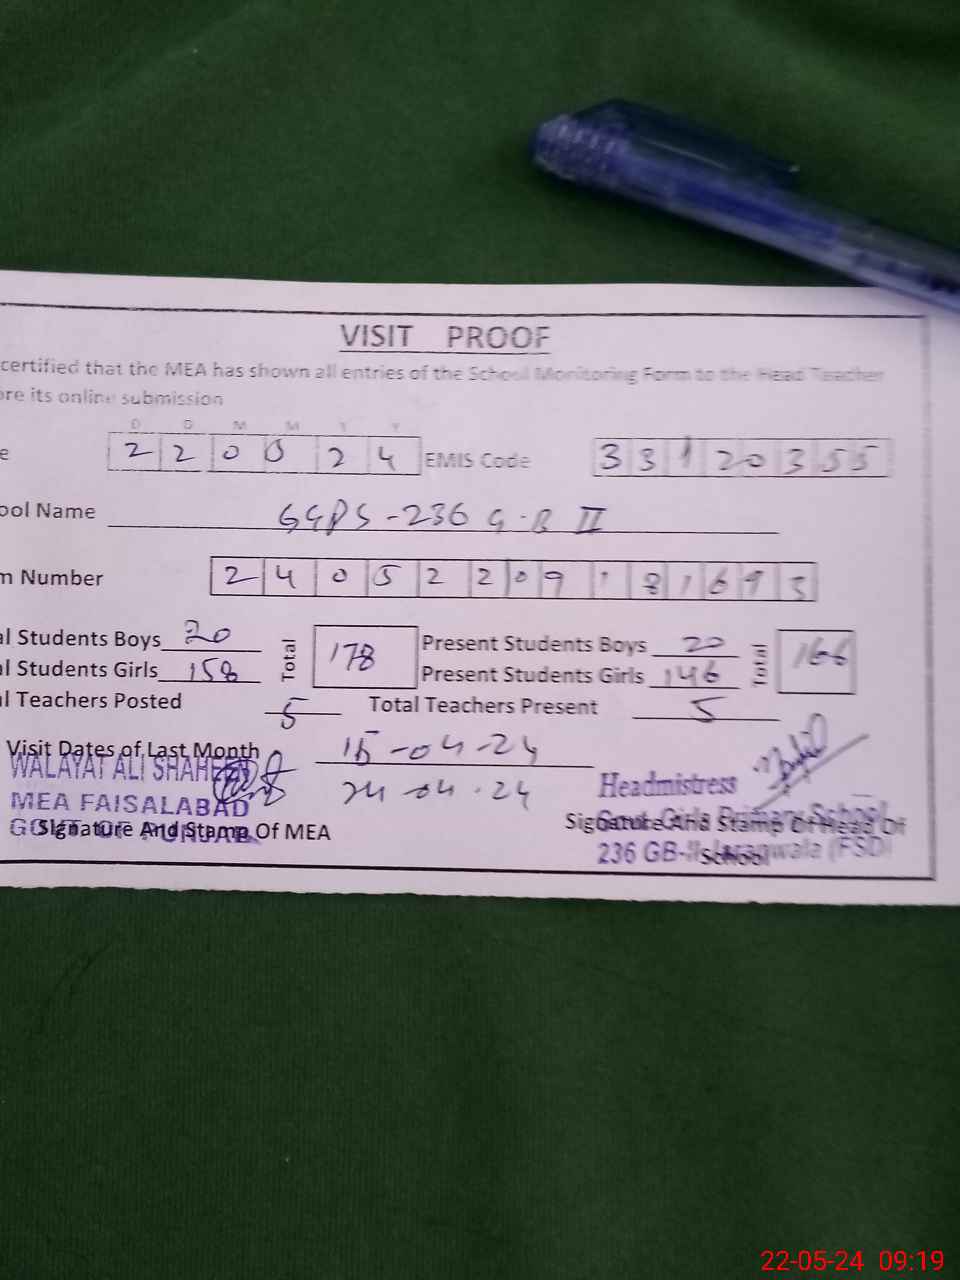 VISIT PROOF
certified that the MEA has shown all entries of the School Monitoring Form to the Head Teacher
ore its online submission
D D M M Y Y
e 220524 EMIS Code 33120355
ool Name GGPS-236 G-B II
m Number 24052209181693
al Students Boys 20 Total 178 Present Students Boys 20 Total 166
al Students Girls 158 Present Students Girls 146
al Teachers Posted 5 Total Teachers Present 5
Visit Dates of Last Month 15-04-24
24-04-24
WALAYAT ALI SHAHEED
MEA FAISALABAD
GOVT. OF PUNJAB
Signature And Stamp Of MEA
Headmistress
Govt. Girls Primary School
236 GB-II Jaranwala (FSD)
Signature And Stamp Of Head Of
School
22-05-24 09:19